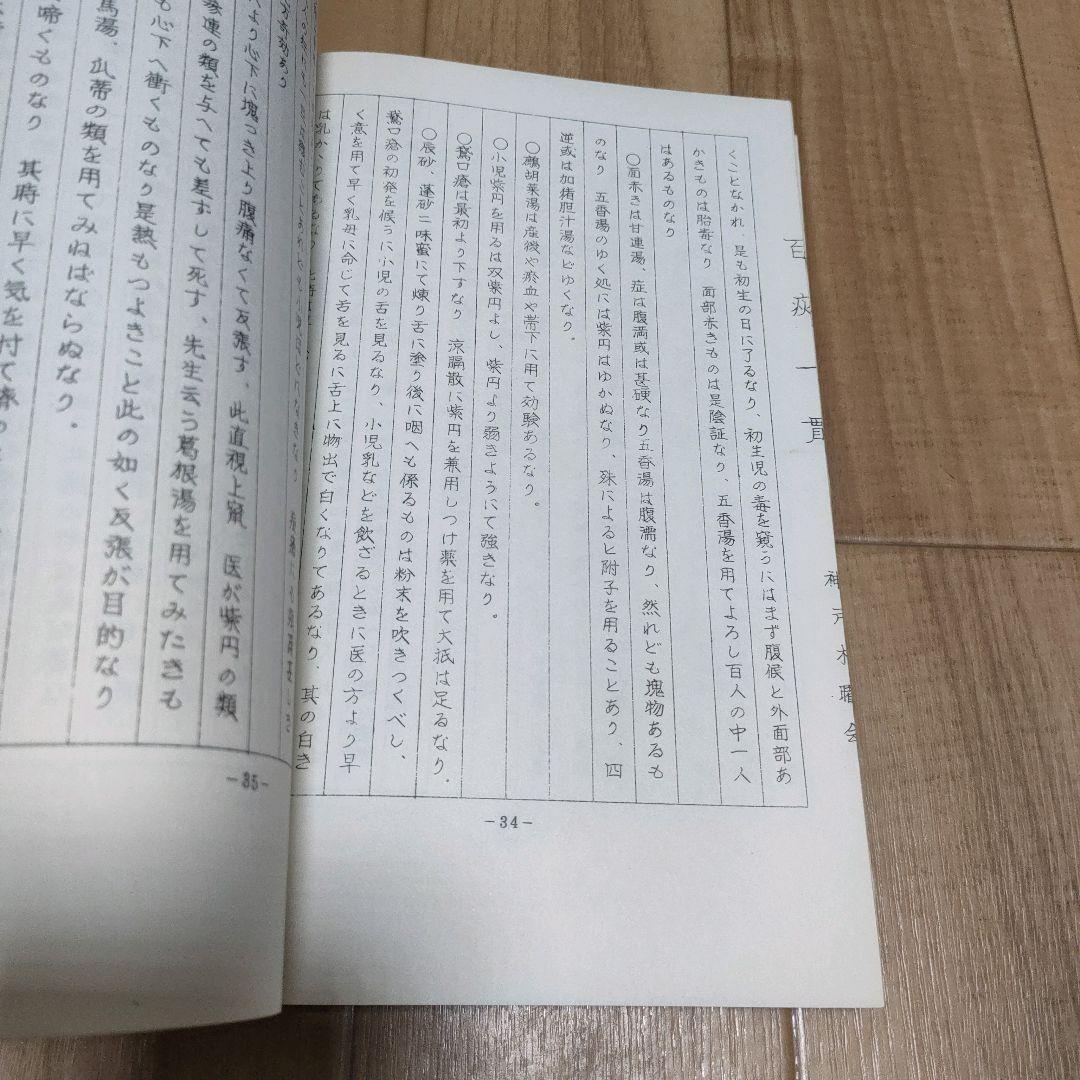 百疢一貫
神戸木曜会
くことなかれ、是も初生の日に了るなり、初生児の毒を窺うにはまず腹候と外面部あ
かきものは胎毒なり　面部赤きものは是陰証なり、五香湯を用てよろし百人の中一人
はあるものなり
○面赤きは甘連湯、症は腹満或は甚硬なり五香湯は腹濡なり、然れども塊物あるも
のなり　五香湯のゆく処には紫円はゆかぬなり、殊によると附子を用ることあり、四
逆或は加猪胆汁湯などゆくなり。
○鷓胡菜湯は産後や瘀血や帯下に用て効験あるなり。
○小児紫円を用るは双紫円よし、紫円より弱きようにて強きなり。
○鵞口瘡は最初より下すなり　涼膈散に紫円を兼用しつけ薬を用て大抵は足るなり.
○辰砂、蓬砂二味蜜にて煉り舌に塗り後に咽へも係るものは粉末を吹きつくべし、
鵞口瘡の初発を候うに小児の舌を見るなり、小児乳などを飲ざるときに医の方より早
く意を用て早く乳母に命じて舌を見るに舌上に物出で白くなりてあるなり、其の白き
は乳かゝりてあるなり
－34－
方奇効あり
へより心下に塊つき上り腹痛なくて反張す、此直視上竄、医が紫円の類
参連の類を与へても差ずして死す、先生云う葛根湯を用てみたきも
も心下へ衝くものなり是熱もつよきこと此の如く反張が目的なり
馬湯、瓜蒂の類を用てみねばならぬなり.
啼くものなり　其時に早く気を付て
－35－